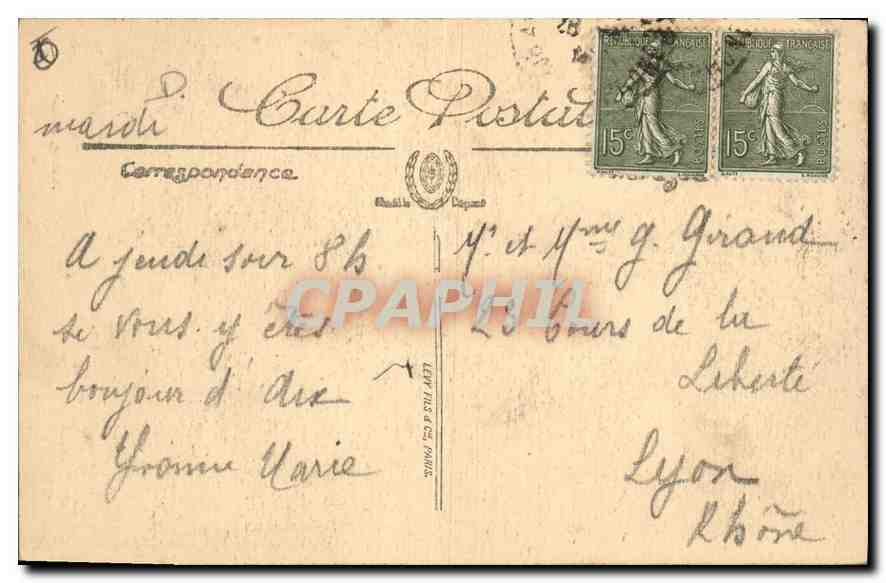 mardi
Carte Postale
Correspondance
REPUBLIQUE FRANÇAISE
15c
POSTES
REPUBLIQUE FRANÇAISE
15c
POSTES
A jeudi soir 8h
si vous y êtes
bonjour d'Aix
Yvonne Marie
LEVY FILS & Cie, PARIS.
Mr et Mme G. Giraud
23 Cours de la
Liberté
Lyon
Rhône
CPAPHIL